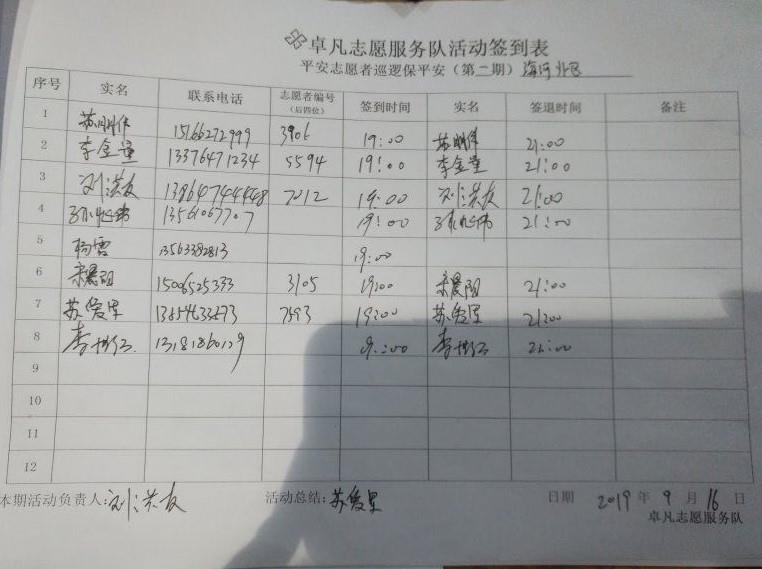 卓凡志愿服务队活动签到表
平安志愿者巡逻保平安（第二期）海河外区
序号 实名 联系电话 志愿者编号（后四位） 签到时间 实名 签退时间 备注
1 苏明伟 15166272999 3906 19:00 苏明伟 21:00
2 李金 13376471234 5594 19:00 李金 21:00
3 刘洪友 13864744448 7212 19:00 刘洪友 21:00
4 13561067707 19:00 21:00
5 杨雪 13563382813 19:00
6 15006525333 3105 19:00 21:00
7 苏爱星 7593 19:00 苏爱星 21:00
8 李 13181860129 9:00 李 21:00
9
10
11
12
本期活动负责人:刘洪友 活动总结:苏爱星 日期 2019年9月16日
卓凡志愿服务队